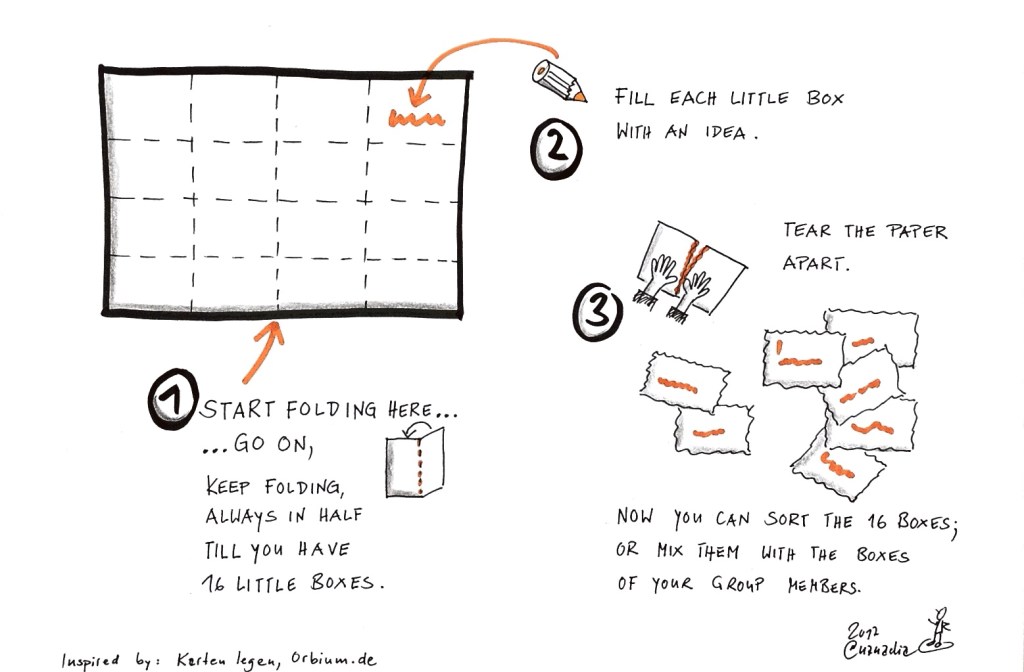 1
START FOLDING HERE...
...GO ON,
KEEP FOLDING,
ALWAYS IN HALF
TILL YOU HAVE
16 LITTLE BOXES.
2
FILL EACH LITTLE BOX
WITH AN IDEA.
3
TEAR THE PAPER
APART.
NOW YOU CAN SORT THE 16 BOXES;
OR MIX THEM WITH THE BOXES
OF YOUR GROUP MEMBERS.
2012
Inspired by: Karten legen, Orbium.de